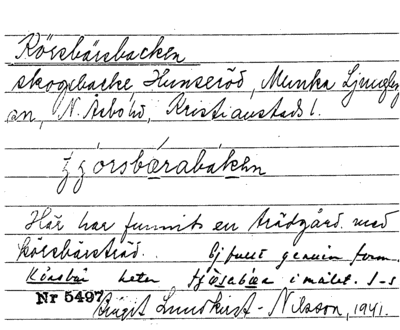 Körsbärsbacken
skogsbacke Hunseröd, Munka Ljungby
sn, N. Åsbo hd, Kristianstads l.
körsbærabakken
Här har funnits en trädgård med
körsbärsträd. Ej fullt genuin form.
Körsbär heter i målet. I-s
Nr 5497 Birgit Lundkvist-Nilsson, 1941.